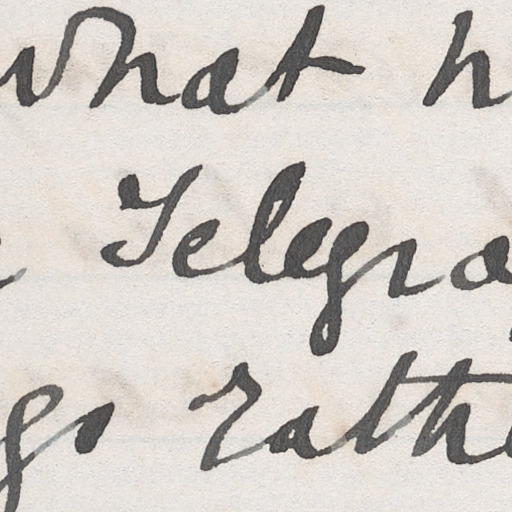 what h
Telegra
go rathe